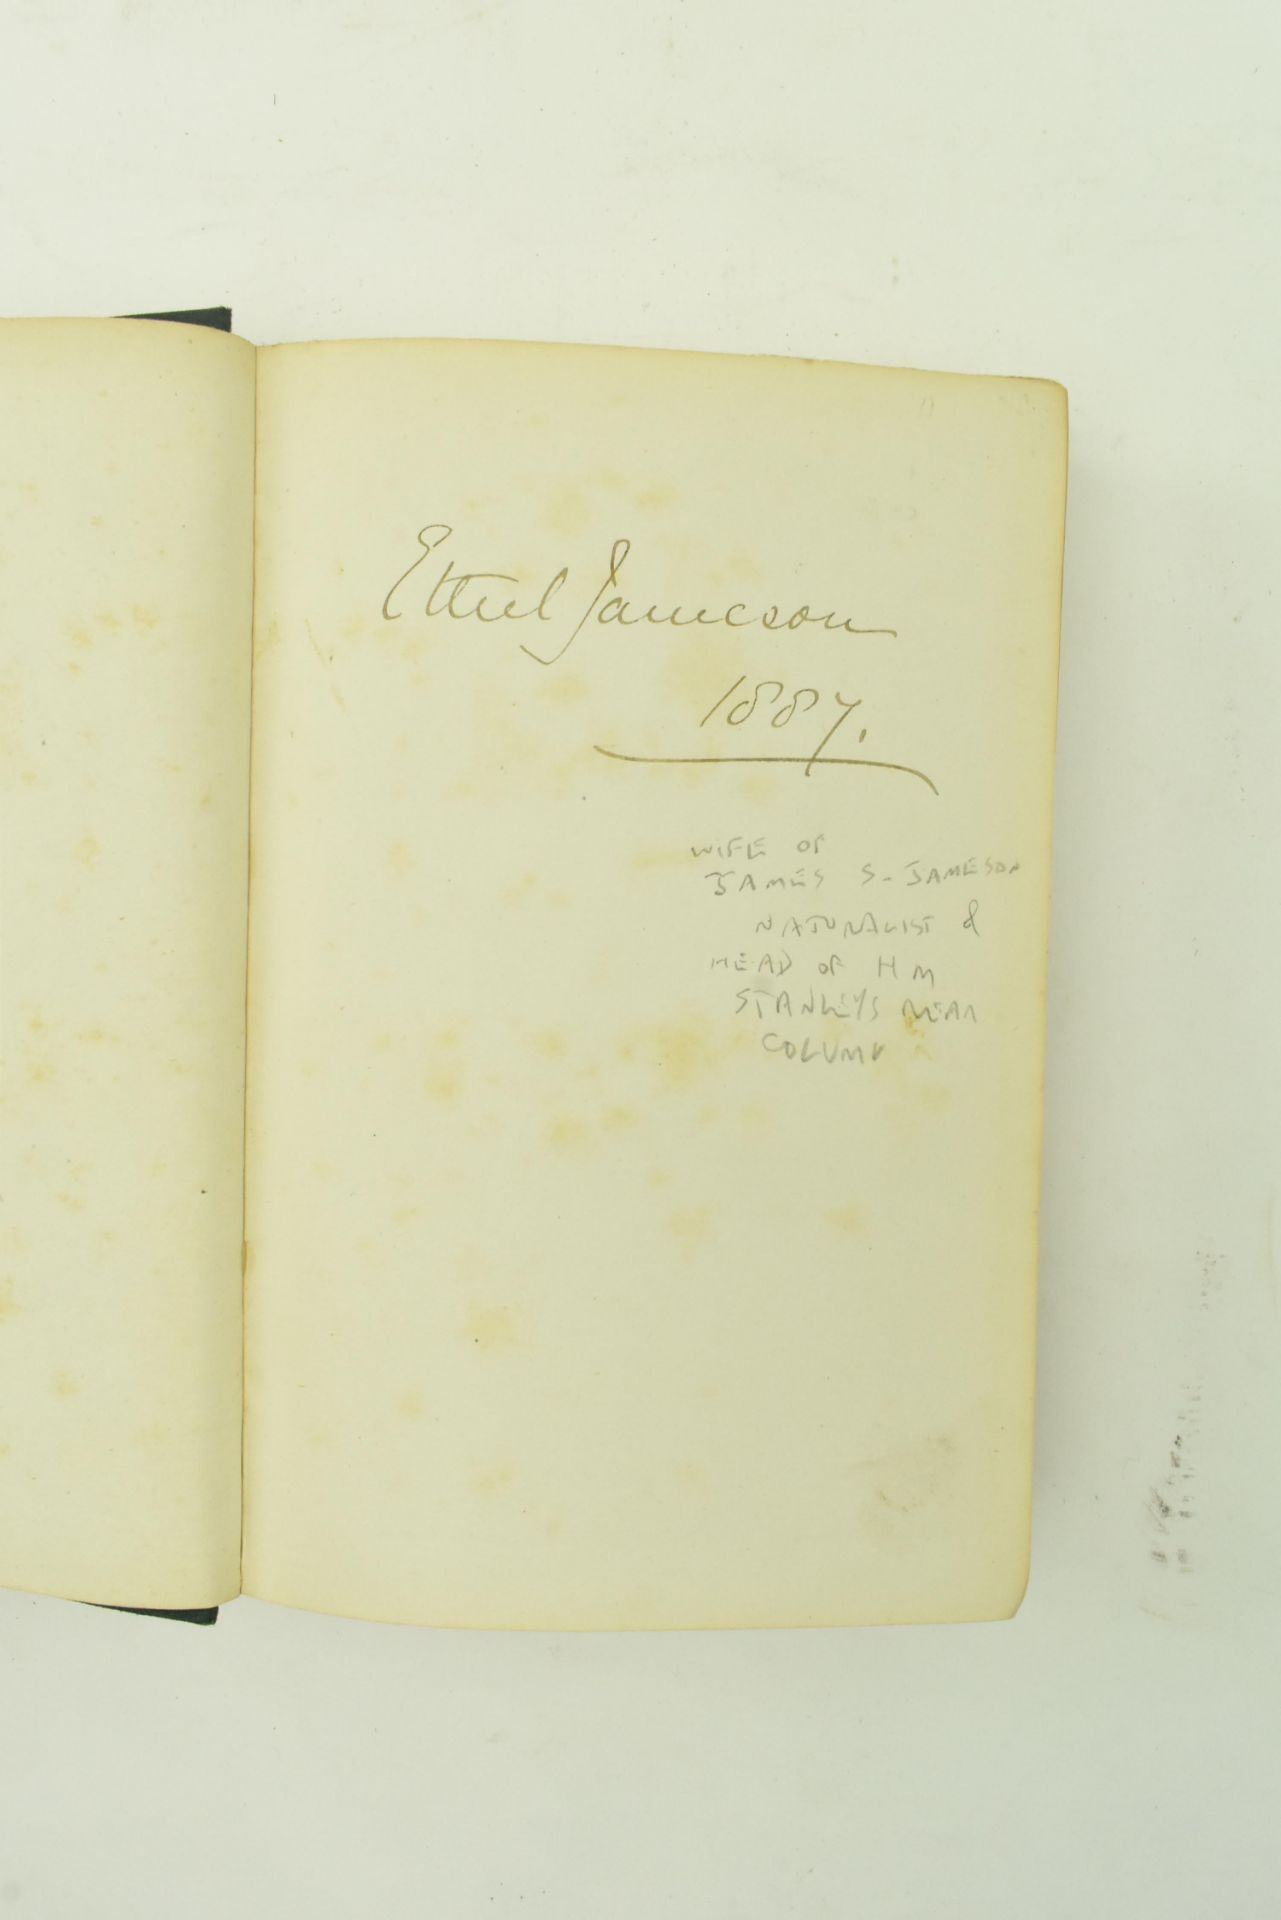 Ethel Jameson
1887.
WIFE OF
JAMES S. JAMESON
NATURALIST &
HEAD OF H M
STANLEYS REAR
COLUMN